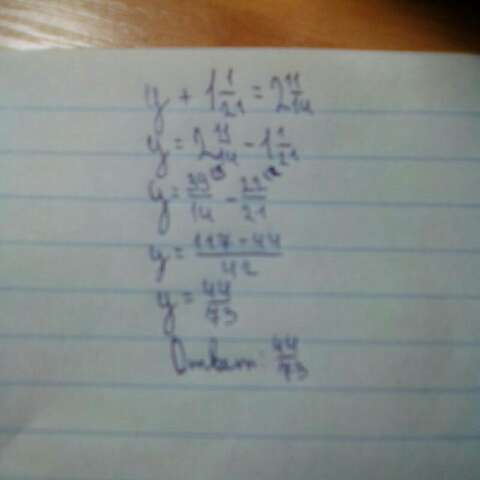 y + 1 1/21 = 2 11/14
y = 2 11/14 - 1 1/21
y = 39/14 - 22/21
y = 117 - 44/42
y = 44/73
Ответ: 44/73